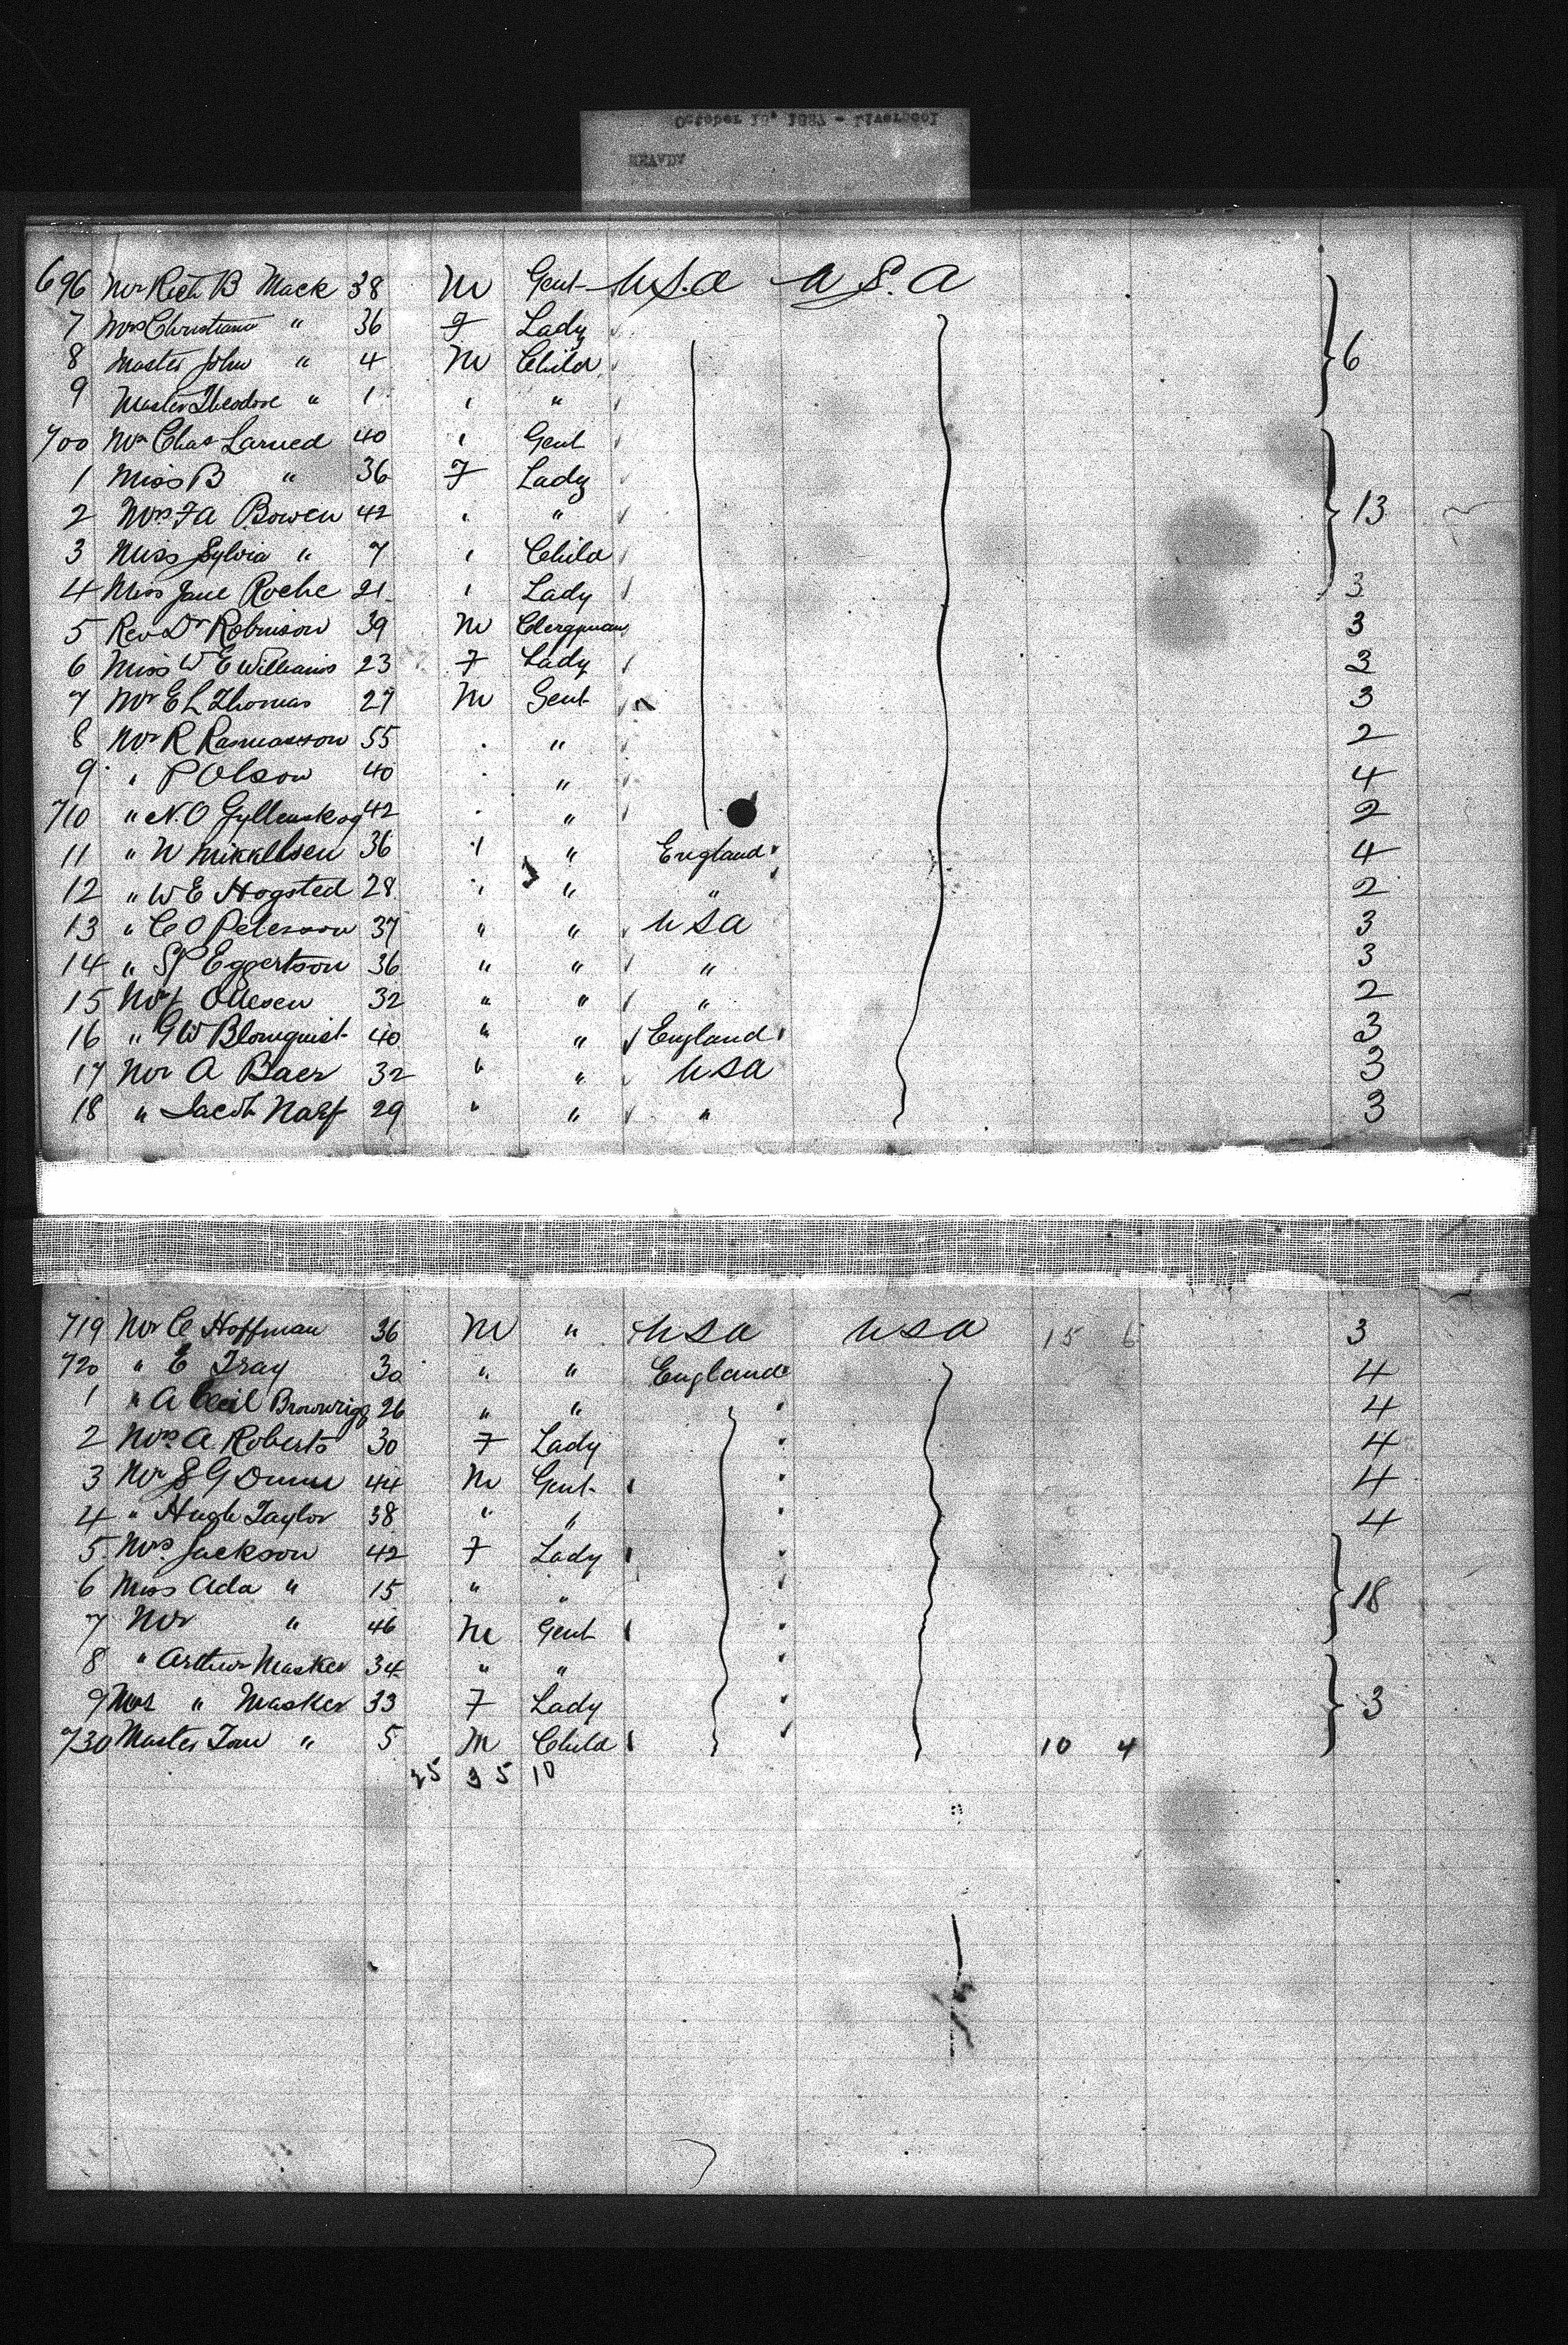 October 18, 1887 - Liverpool
NEVADA
696 Mr Rich B Mack 38 M Gent U.S.A U.S.A
7 Mrs Christiana " 36 F Lady
8 Master John " 4 M Child 6
9 Master Theodore " 1 " "
700 Mr Chas Larned 40 " Gent
1 Miss B " 36 F Lady
2 Mrs F A Bowen 42 " " 13
3 Miss Sylvia " 7 " Child
4 Miss Jane Roche 21 " Lady 3
5 Rev Dr Robinson 39 M Clergman 3
6 Miss W E Williams 23 F Lady 3
7 Mr E L Thomas 27 M Gent 3
8 Mr R Rasmasson 55 " " 2
9 " P Olson 40 " " 4
710 " N. O Gyllenskog 42 " " 2
11 " N Mikkelsen 36 " " England 4
12 " W E Hogsted 28 " " " 2
13 " C O Peterson 37 " " USA 3
14 " S P Eggertson 36 " " " 3
15 Mr J Ollesen 32 " " " 2
16 " G W Blomquist 40 " " England 3
17 Mr A Baer 32 " " USA 3
18 " Jacob Naef 29 " " " 3
719 Mr C Hoffman 36 M " USA USA 15 6 3
720 " E Tray 30 " " England 4
1 " A Cecil Brownrigg 26 " " 4
2 Mrs A Roberts 30 F Lady 4
3 Mr S G Dunn 44 M Gent 4
4 " Hugh Taylor 38 " " 4
5 Mrs Jackson 42 F Lady
6 Miss Ada " 15 " " 18
7 Mr " 46 M Gent
8 " Arthur Masker 34 " "
9 Mrs " Masker 33 F Lady 3
730 Master Tom " 5 M Child 10 4
25 35 10